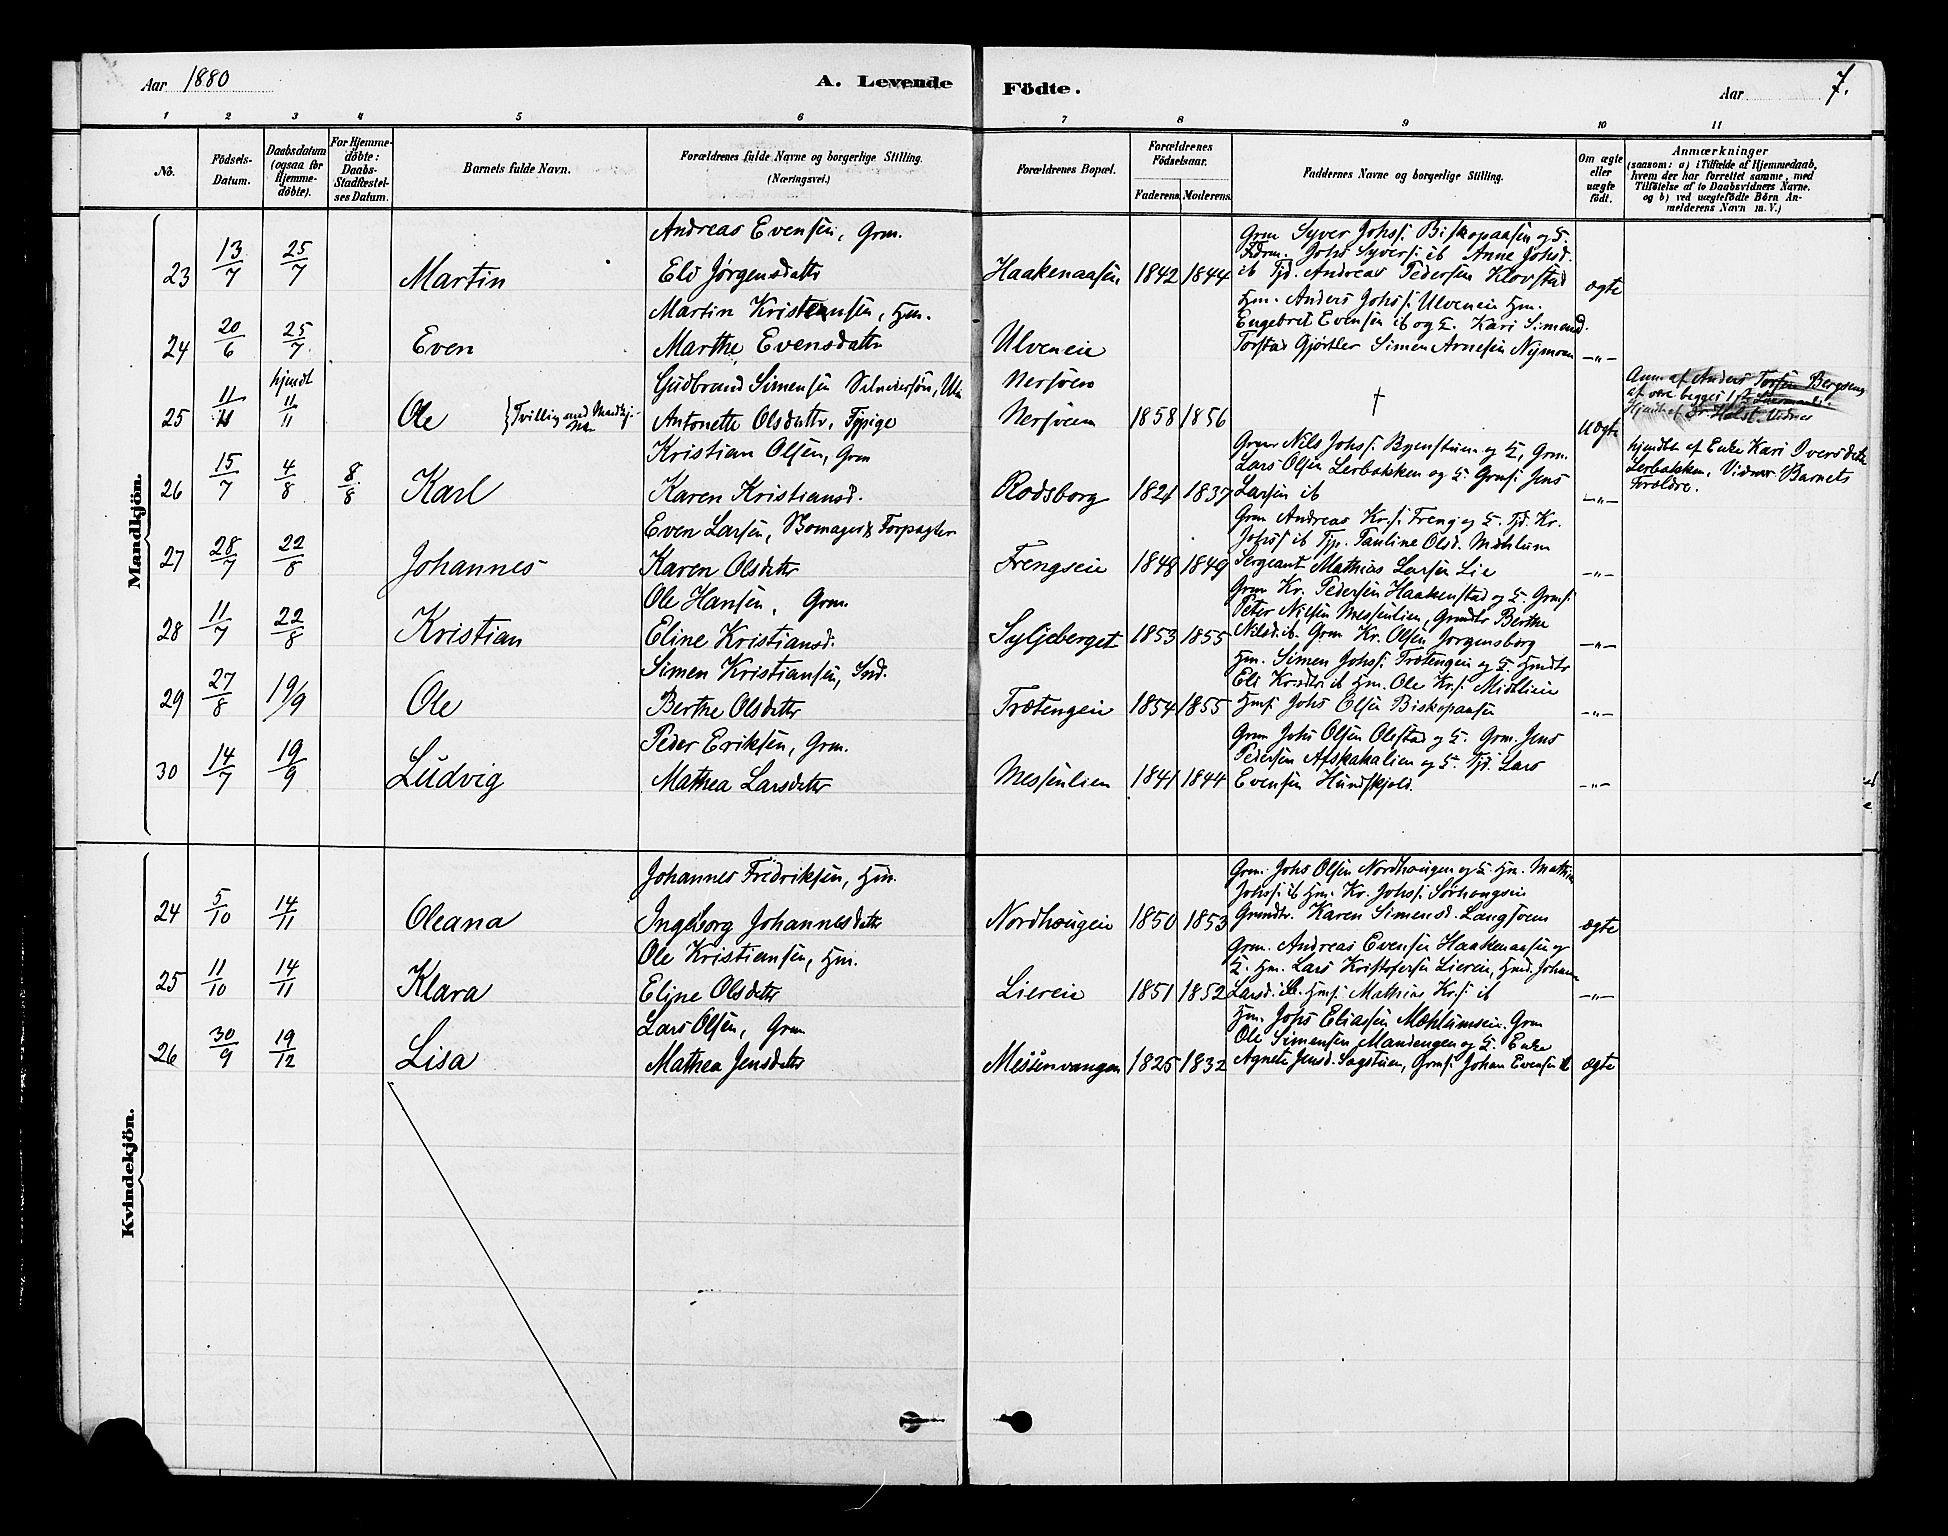 Aar 1880
A. Levende Födte.
Aar 7.
1 2 3 4 5 6 7 8 9 10 11
No.
Födsels-Datum.
Daabsdatum (ogsaa for Hjemme-döbte).
For Hjemme-döbte: Daabs-Stadfæstel-ses Datum.
Barnets fulde Navn.
Forældrenes fulde Navne og borgerlige Stilling.
(Næringsvei.)
Forældrenes Bopæl.
Forældrenes Födselsaar.
Faderens. Moderens.
Faddernes Navne og borgerlige Stilling.
Om ægte eller uægte födt.
Anmærkninger
(saasom: a) i Tilfælde af Hjemmedaab,
hvem der har forrettet samme, med
Tilföielse af to Daabsvidners Navne.
og b) ved uægtefödte Börn An-
melderens Navn m. V.)
Mandkjön.
23 13/7 25/7 Martin
Andreas Evensen, Grm.
Eli Jørgensdatter
Haakenaasen 1842 1844
Grm Syver Johs. Biskopaasen og H.
Fdrm. Johs Syvers. ib Anne Johsd.
ib Tjd. Andreas Pedersen Klovstad
ægte
24 20/6 25/7 Even
Martin Kristensen, Hm.
Marthe Evensdatter
Ulveneie
Hm. Anders Johs. Ulveneie Hm.
Engebret Evensen ib og H. Kari Simensd.
Torstad Gjørtler Simen Arnesen Nymoen
-"-
25 11/11 hjemdt 11/11 Ole {Tvilling med Mandkj.
Gudbrand Simensen
Antonette Olsdatter, Tjpige
Nersøen
Nersøen 1858 1856
†
uægte
Anm. af Anders Bergseng
Hjemdt af Dr. Holst. Vidner
26 15/7 4/8 8/8 Karl
Kristian Olsen, Grm
Karen Kristiansd.
Rodsborg 1821 1837
Grm Nils Johs. Byenstuen og H, Grm.
Lars Olsen Lerbakken og H. Grms. Jens
Larsen ib
-"-
hjemdbt af Enke Kari Iversdatter
Lerbakken, Vidner: Barnets
Forældre.
27 28/7 22/8 Johannes
Even Larsen, Bomager & Forpagter
Karen Olsdatter
Frengseie 1848 1849
Grm Andreas Kr.s. Freng og H. Tjd. Kr.
Johs. ib Tjp. Pauline Olsd. Mæhlum
Sergeant Mathias Larsen Lie
-"-
28 11/7 22/8 Kristian
Ole Hansen, Grm.
Eline Kristiansd.
Syljeberget 1853 1855
Grm Kr. Pedersen Haakenstad og H. Grms.
Peter Nilsen Messenlien, Grmdtr Berthe
Nilsd. ib. Grm Kr. Olsen Jorgensborg
-"-
29 27/8 19/9 Ole
Simen Kristiansen, Ind.
Berthe Olsdatter
Trøtengeie 1854 1855
Hm. Simen Johs. Trøtengeie og H. Hmdtr
Eli Krsdtr ib Hm. Ole Kr.s. Midtlien
Hms. Johs Olsen Biskopaasen
-"-
30 14/7 19/9 Ludvig
Peder Eriksen, Grm.
Mathea Larsdatter
Messenlien 1841 1844
Grm Johs Olsen Olestad og H. Grm. Jens
Pedersen Afskakalien og H. Tjd. Lars
Evensen Hundskjold.
-"-
Kvindekjön.
24 5/10 14/11 Oleana
Johannes Fredriksen, Hm.
Ingeborg Johannesdatter
Nordhaugeie 1850 1853
Grm. Johs Olsen Nordhaugen og H. Hm. Mathias
Johs. ib Hm. Kr. Johs. Sørhaugseie
Grmdtr. Karen Simensd. Langsoen
ægte
25 11/10 14/11 Klara
Ole Kristiansen, Hm.
Eline Olsdatter
Liereie 1851 1852
Grm. Andreas Evensen Haakenaasen og
H. Hm. Lars Kristofersen Liereie, Hmd. Johanne
Larsd. ib. Hms. Mathias Kr.s. ib
-"-
26 30/9 19/12 Lisa
Lars Olsen, Grm
Mathea Jensdatter
Messenvangen 1825 1832
Hm. Johs Eliasen Mæhlumseie. Grm
Ole Simensen Mandengen og H. Enke
Agnete Jensd. Sagstuen, Grms. Johan Evensen ib
ægte